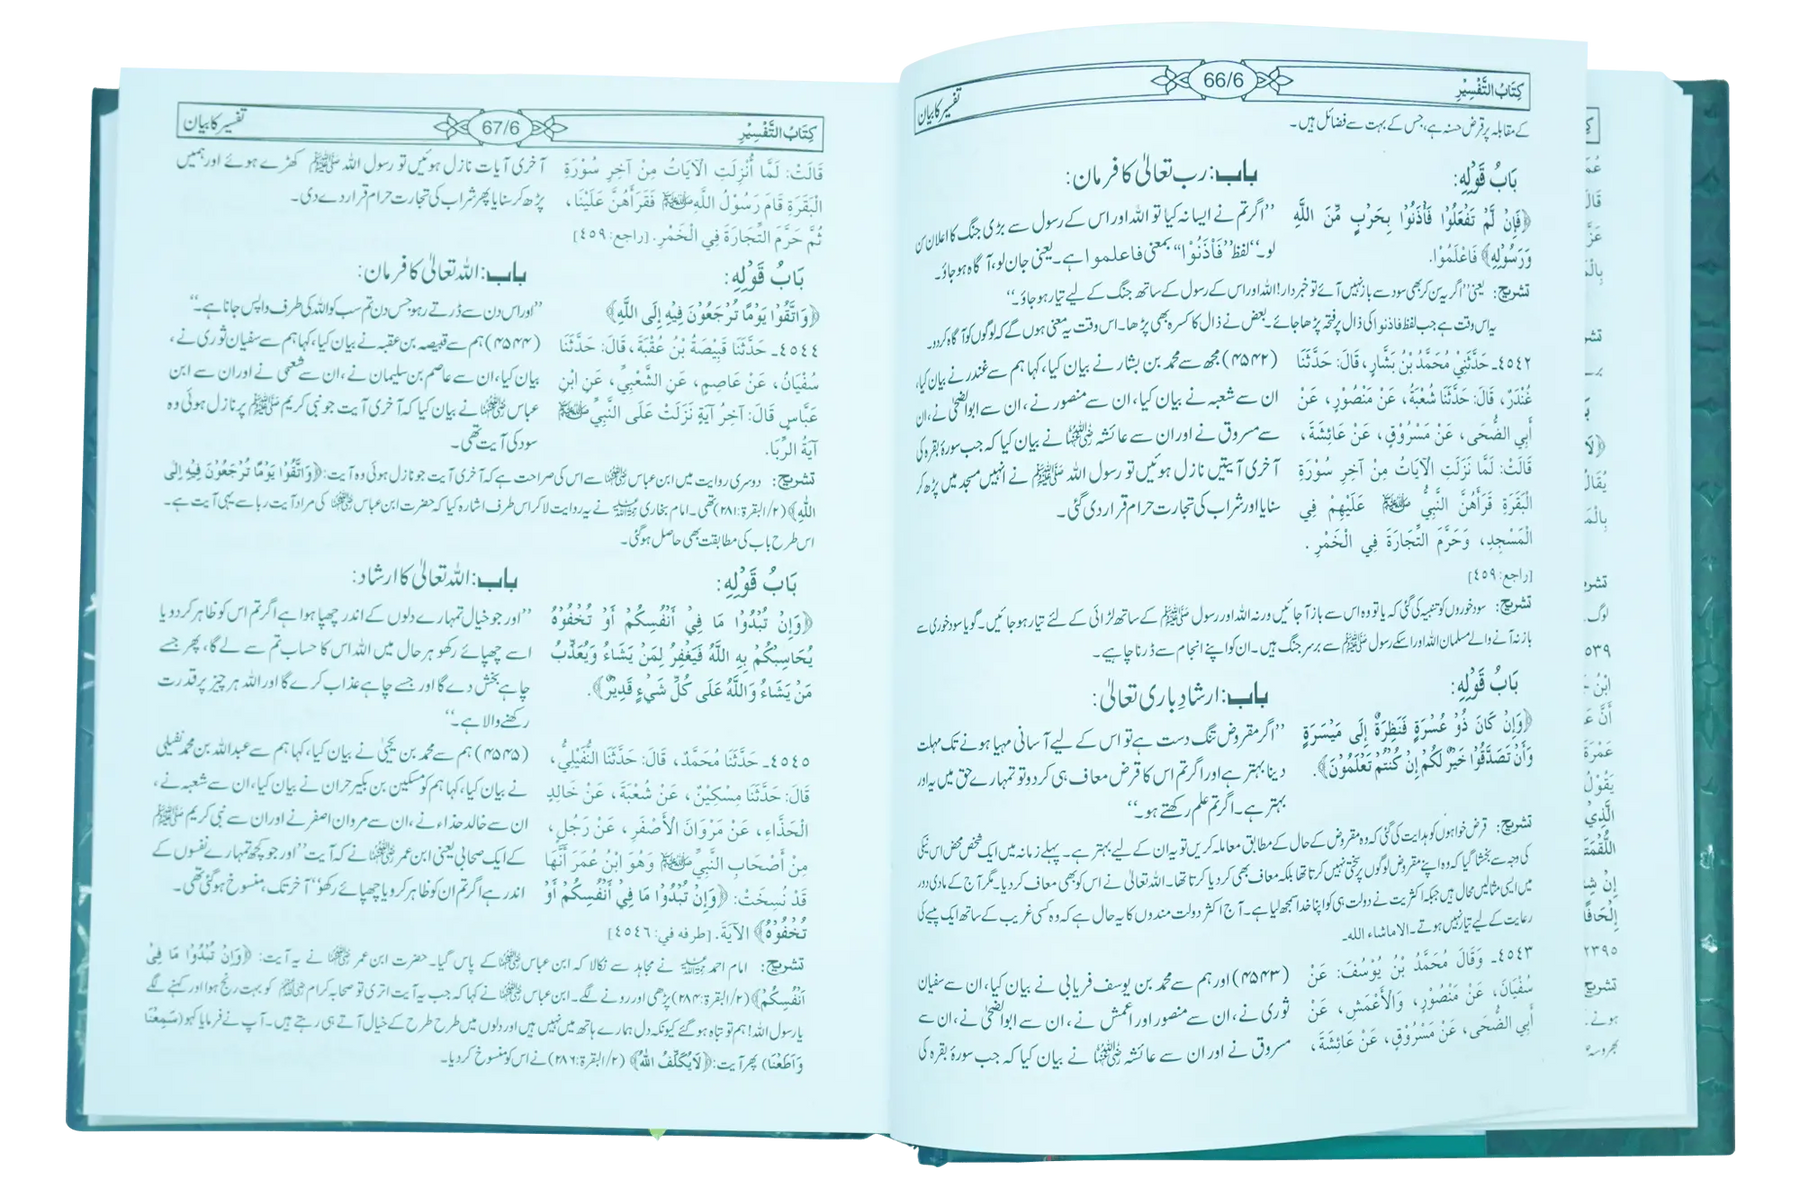 كِتَابُ التَّفْسِيْرِ 66/6 تفسیر کا بیان
کے مقابلہ پر قرض حسنہ ہے، جس کے بہت سے فضائل ہیں۔
بَابُ قَوْلِهِ:
﴿فَإِنْ لَّمْ تَفْعَلُوْا فَأْذَنُوْا بِحَرْبٍ مِّنَ اللَّهِ
وَرَسُوْلِهِ﴾ فَاعْلَمُوْا.
باب: رب تعالیٰ کا فرمان:
”اگر تم نے ایسا نہ کیا تو اللہ اور اس کے رسول سے بڑی جنگ کا اعلان سن
لو۔“ لفظ ”فَأْذَنُوْا“ بمعنی فاعلموا ہے۔ یعنی جان لو، آگاہ ہو جاؤ۔
تشریح: یعنی ”اگر یہ سن کر بھی سود سے باز نہیں آئے تو خبردار! اللہ اور اس کے رسول کے ساتھ جنگ کے لیے تیار ہو جاؤ۔“
یہ اس وقت ہے جب لفظ فاذنوا کی ذال پر فتحہ پڑھا جائے۔ بعض نے ذال کا کسرہ بھی پڑھا۔ اس وقت یہ معنی ہوں گے کہ لوگوں کو آگاہ کر دو۔
٤٥٤٢۔ حَدَّثَنِيْ مُحَمَّدُ بْنُ بَشَّارٍ، قَالَ: حَدَّثَنَا
غُنْدَرٌ، قَالَ: حَدَّثَنَا شُعْبَةُ، عَنْ مَنْصُوْرٍ، عَنْ
أَبِي الضُّحَى، عَنْ مَسْرُوْقٍ، عَنْ عَائِشَةَ،
قَالَتْ: لَمَّا نَزَلَتِ الْآيَاتُ مِنْ آخِرِ سُوْرَةِ
الْبَقَرَةِ قَرَأَهُنَّ النَّبِيُّ ﷺ عَلَيْهِمْ فِي
الْمَسْجِدِ، وَحَرَّمَ التِّجَارَةَ فِي الْخَمْرِ.
[راجع: ٤٥٩]
(۴۵۴۲) مجھ سے محمد بن بشار نے بیان کیا، کہا ہم سے غندر نے بیان کیا،
ان سے شعبہ نے بیان کیا، ان سے منصور نے، ان سے ابوالضحیٰ نے، ان
سے مسروق نے اور ان سے عائشہ رضی اللہ عنہا نے بیان کیا کہ جب سورۂ بقرہ کی
آخری آیتیں نازل ہوئیں تو رسول اللہ ﷺ نے انہیں مسجد میں پڑھ کر
سنایا اور شراب کی تجارت حرام قرار دی گئی۔
تشریح: سود خوروں کو تنبیہ کی گئی کہ یا تو وہ اس سے باز آ جائیں ورنہ اللہ اور رسول ﷺ کے ساتھ لڑائی کے لئے تیار ہو جائیں۔ گویا سود خوری سے
باز نہ آنے والے مسلمان اللہ اور اسکے رسول ﷺ سے برسر جنگ ہیں۔ ان کو اپنے انجام سے ڈرنا چاہیے۔
بَابُ قَوْلِهِ:
﴿وَإِنْ كَانَ ذُوْ عُسْرَةٍ فَنَظِرَةٌ إِلَى مَيْسَرَةٍ
وَأَنْ تَصَدَّقُوْا خَيْرٌ لَكُمْ إِنْ كُنْتُمْ تَعْلَمُوْنَ﴾.
باب: ارشاد باری تعالیٰ:
”اگر مقروض تنگ دست ہے تو اس کے لیے آسانی مہیا ہونے تک مہلت
دینا بہتر ہے اور اگر تم اس کا قرض معاف ہی کر دو تو تمہارے حق میں یہ اور
بہتر ہے۔ اگر تم علم رکھتے ہو۔“
تشریح: قرض خواہوں کو ہدایت کی گئی کہ وہ مقروض کے حال کے مطابق معاملہ کریں تو یہ ان کے لیے بہتر ہے۔ پہلے زمانہ میں ایک شخص محض اس نیکی
کی وجہ سے بخشا گیا کہ وہ اپنے مقروض لوگوں پر سختی نہیں کرتا تھا بلکہ معاف بھی کر دیا کرتا تھا۔ اللہ تعالیٰ نے اس کو بھی معاف کر دیا۔ مگر آج کے مادی دور
میں ایسی مثالیں محال ہیں جبکہ اکثریت نے دولت ہی کو اپنا خدا سمجھ لیا ہے۔ آج اکثر دولت مندوں کا یہ حال ہے کہ وہ کسی غریب کے ساتھ ایک پیسے کی
رعایت کے لیے تیار نہیں ہوتے۔ الا ماشاء اللہ۔
٤٥٤٣۔ وَقَالَ مُحَمَّدُ بْنُ يُوْسُفَ: عَنْ
سُفْيَانَ، عَنْ مَنْصُوْرٍ، وَالْأَعْمَشِ، عَنْ
أَبِي الضُّحَى، عَنْ مَسْرُوْقٍ، عَنْ عَائِشَةَ،
(۴۵۴۳) اور ہم سے محمد بن یوسف فریابی نے بیان کیا، ان سے سفیان
ثوری نے، ان سے منصور اور اعمش نے، ان سے ابوالضحیٰ نے، ان سے
مسروق نے اور ان سے عائشہ رضی اللہ عنہا نے بیان کیا کہ جب سورۂ بقرہ کی
كِتَابُ التَّفْسِيْرِ 67/6 تفسیر کا بیان
قَالَتْ: لَمَّا أُنْزِلَتِ الْآيَاتُ مِنْ آخِرِ سُوْرَةِ
الْبَقَرَةِ قَامَ رَسُوْلُ اللَّهِ ﷺ فَقَرَأَهُنَّ عَلَيْنَا،
ثُمَّ حَرَّمَ التِّجَارَةَ فِي الْخَمْرِ. [راجع: ٤٥٩]
آخری آیات نازل ہوئیں تو رسول اللہ ﷺ کھڑے ہوئے اور ہمیں
پڑھ کر سنایا پھر شراب کی تجارت حرام قرار دے دی۔
بَابُ قَوْلِهِ:
﴿وَاتَّقُوْا يَوْمًا تُرْجَعُوْنَ فِيْهِ إِلَى اللَّهِ﴾
باب: اللہ تعالیٰ کا فرمان:
”اور اس دن سے ڈرتے رہو جس دن تم سب کو اللہ کی طرف واپس جانا ہے۔“
٤٥٤٤۔ حَدَّثَنَا قَبِيْصَةُ بْنُ عُقْبَةَ، قَالَ: حَدَّثَنَا
سُفْيَانُ، عَنْ عَاصِمٍ، عَنِ الشَّعْبِيِّ، عَنِ ابْنِ
عَبَّاسٍ قَالَ: آخِرُ آيَةٍ نَزَلَتْ عَلَى النَّبِيِّ ﷺ
آيَةُ الرِّبَا.
(۴۵۴۴) ہم سے قبیصہ بن عقبہ نے بیان کیا، کہا ہم سے سفیان ثوری نے،
بیان کیا، ان سے عاصم بن سلیمان نے، ان سے شعبی نے اور ان سے ابن
عباس رضی اللہ عنہما نے بیان کیا کہ آخری آیت جو نبی کریم ﷺ پر نازل ہوئی وہ
سود کی آیت تھی۔
تشریح: دوسری روایت میں ابن عباس رضی اللہ عنہما سے اس کی صراحت ہے کہ آخری آیت جو نازل ہوئی وہ آیت: ﴿وَاتَّقُوْا يَوْمًا تُرْجَعُوْنَ فِيْهِ إِلَى
اللّٰهِ﴾ (۲/البقرۃ:۲۸۱) تھی۔ امام بخاری رحمہ اللہ نے یہ روایت لا کر اس طرف اشارہ کیا کہ حضرت ابن عباس رضی اللہ عنہما کی مراد آیت ربا سے یہی آیت ہے۔
اس طرح باب کی مطابقت بھی حاصل ہو گئی۔
بَابُ قَوْلِهِ:
﴿وَإِنْ تُبْدُوْا مَا فِيْ أَنْفُسِكُمْ أَوْ تُخْفُوْهُ
يُحَاسِبْكُمْ بِهِ اللَّهُ فَيَغْفِرُ لِمَنْ يَشَاءُ وَيُعَذِّبُ
مَنْ يَشَاءُ وَاللَّهُ عَلَى كُلِّ شَيْءٍ قَدِيْرٌ﴾.
باب: اللہ تعالیٰ کا ارشاد:
”اور جو خیال تمہارے دلوں کے اندر چھپا ہوا ہے اگر تم اس کو ظاہر کر دو یا
اسے چھپائے رکھو ہر حال میں اللہ اس کا حساب تم سے لے گا، پھر جسے
چاہے بخش دے گا اور جسے چاہے عذاب کرے گا اور اللہ ہر چیز پر قدرت
رکھنے والا ہے۔“
٤٥٤٥۔ حَدَّثَنَا مُحَمَّدٌ، قَالَ: حَدَّثَنَا النُّفَيْلِيُّ،
قَالَ: حَدَّثَنَا مِسْكِيْنٌ، عَنْ شُعْبَةَ، عَنْ خَالِدٍ
الْحَذَّاءِ، عَنْ مَرْوَانَ الْأَصْفَرِ، عَنْ رَجُلٍ،
مِنْ أَصْحَابِ النَّبِيِّ ﷺ وَهُوَ ابْنُ عُمَرَ أَنَّهَا
قَدْ نُسِخَتْ: ﴿وَإِنْ تُبْدُوْا مَا فِيْ أَنْفُسِكُمْ أَوْ
تُخْفُوْهُ﴾ الآيَةَ. [طرفه في: ٤٥٤٦]
(۴۵۴۵) ہم سے محمد بن یحییٰ نے بیان کیا، کہا ہم سے عبداللہ بن محمد نفیلی
نے بیان کیا، کہا ہم کو مسکین بن بکیر حران نے بیان کیا، ان سے شعبہ نے،
ان سے خالد حذاء نے، ان سے مروان اصفر نے اور ان سے نبی کریم ﷺ
کے ایک صحابی یعنی ابن عمر رضی اللہ عنہما نے کہ آیت ”اور جو کچھ تمہارے نفسوں کے
اندر ہے اگر تم ان کو ظاہر کرو یا چھپائے رکھو“ آخر تک منسوخ ہو گئی تھی۔
تشریح: امام احمد رحمہ اللہ نے مجاہد سے نکالا کہ ابن عباس رضی اللہ عنہما کے پاس گیا۔ حضرت ابن عمر رضی اللہ عنہما نے یہ آیت: ﴿وَإِنْ تُبْدُوْا مَا فِيْ
أَنْفُسِكُمْ﴾ (۲/البقرۃ:۲۸۴) پڑھی اور رونے لگے۔ ابن عباس رضی اللہ عنہما نے کہا کہ جب یہ آیت اتری تو صحابہ کرام کو بہت رنج ہوا اور کہنے لگے
یا رسول اللہ! ہم تو تباہ ہو گئے کیونکہ دل ہمارے ہاتھ میں نہیں ہیں اور دلوں میں طرح طرح کے خیال آتے ہی رہتے ہیں۔ آپ نے فرمایا کہو (سَمِعْنَا
وَأَطَعْنَا) پھر آیت: ﴿لَا يُكَلِّفُ اللّٰهُ﴾ (۲/البقرۃ:۲۸۶) نے اس کو منسوخ کر دیا۔